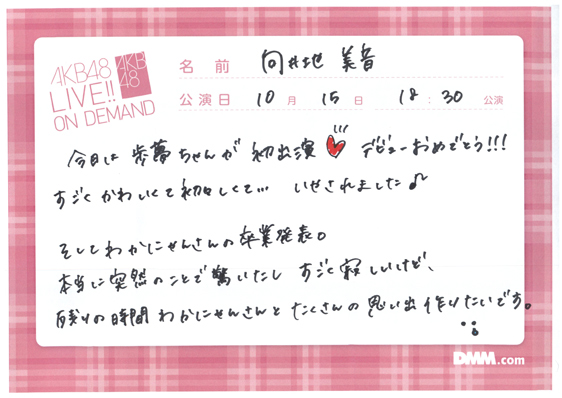 AKB48
LIVE!!
ON DEMAND
AKB
48
名前 向井地 美音
公演日 10月 15日 18:30公演
今日は 歩夢ちゃんが 初出演 デビューおめでとう!!!
すごくかわいくて初々しくて… いやされました♪
そしてわかにゃんさんの卒業発表。
本当に突然のことで驚いたし すごく寂しいけど、
残りの時間 わかにゃんさんと たくさんの思い出 作りたいです。
DMM.com